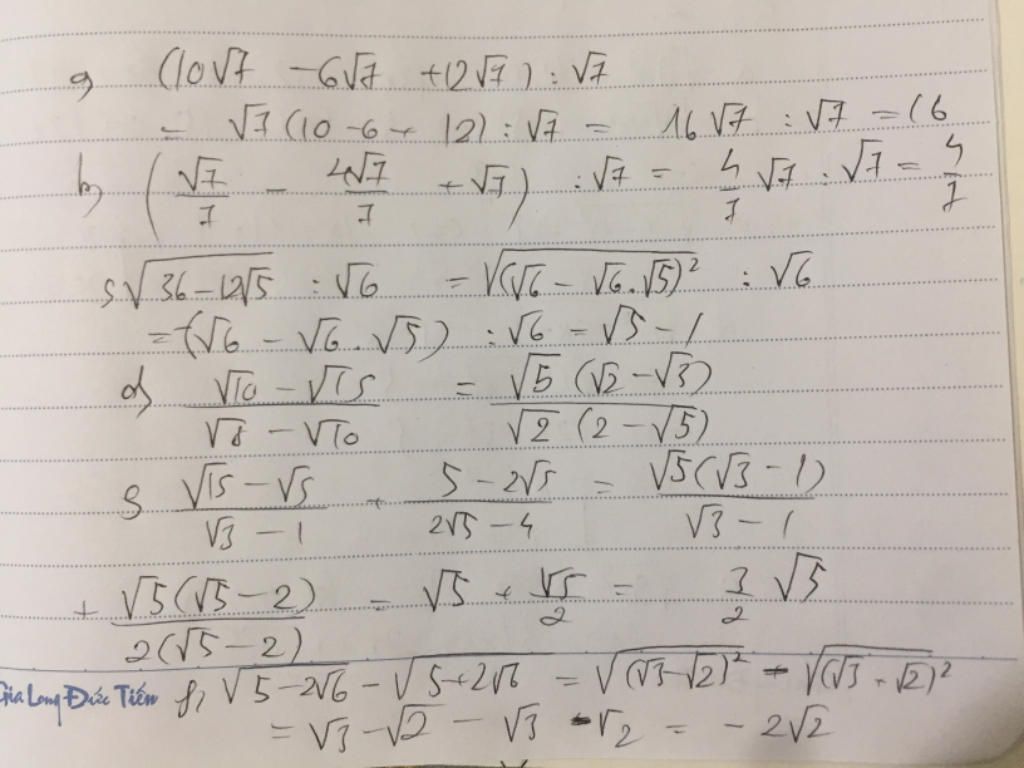 a) (10√7 - 6√7 + 12√7) : √7
= √7(10 - 6 + 12) : √7 = 16√7 : √7 = 16
b) (√7/7 - 4√7/7 + √7) : √7 = 4/7 √7 : √7 = 4/7
c) √(36 - 12√5) : √6 = √((√6 - √6.√5)²) : √6
= -(√6 - √6.√5) : √6 = √5 - 1
d) (√10 - √15)/(√8 - √10) = √5(√2 - √3)/(√2(2 - √5))
e) (√15 - √5)/(√3 - 1) + (5 - 2√5)/(2√5 - 4) = √5(√3 - 1)/(√3 - 1)
+ √5(√5 - 2)/(2(√5 - 2)) = √5 + √5/2 = 3/2 √5
f, √(5 - 2√6) - √(5 + 2√6) = √((√3 - √2)²) - √((√3 + √2)²)
Gia Long Đức Tiến
= √3 - √2 - √3 - √2 = -2√2